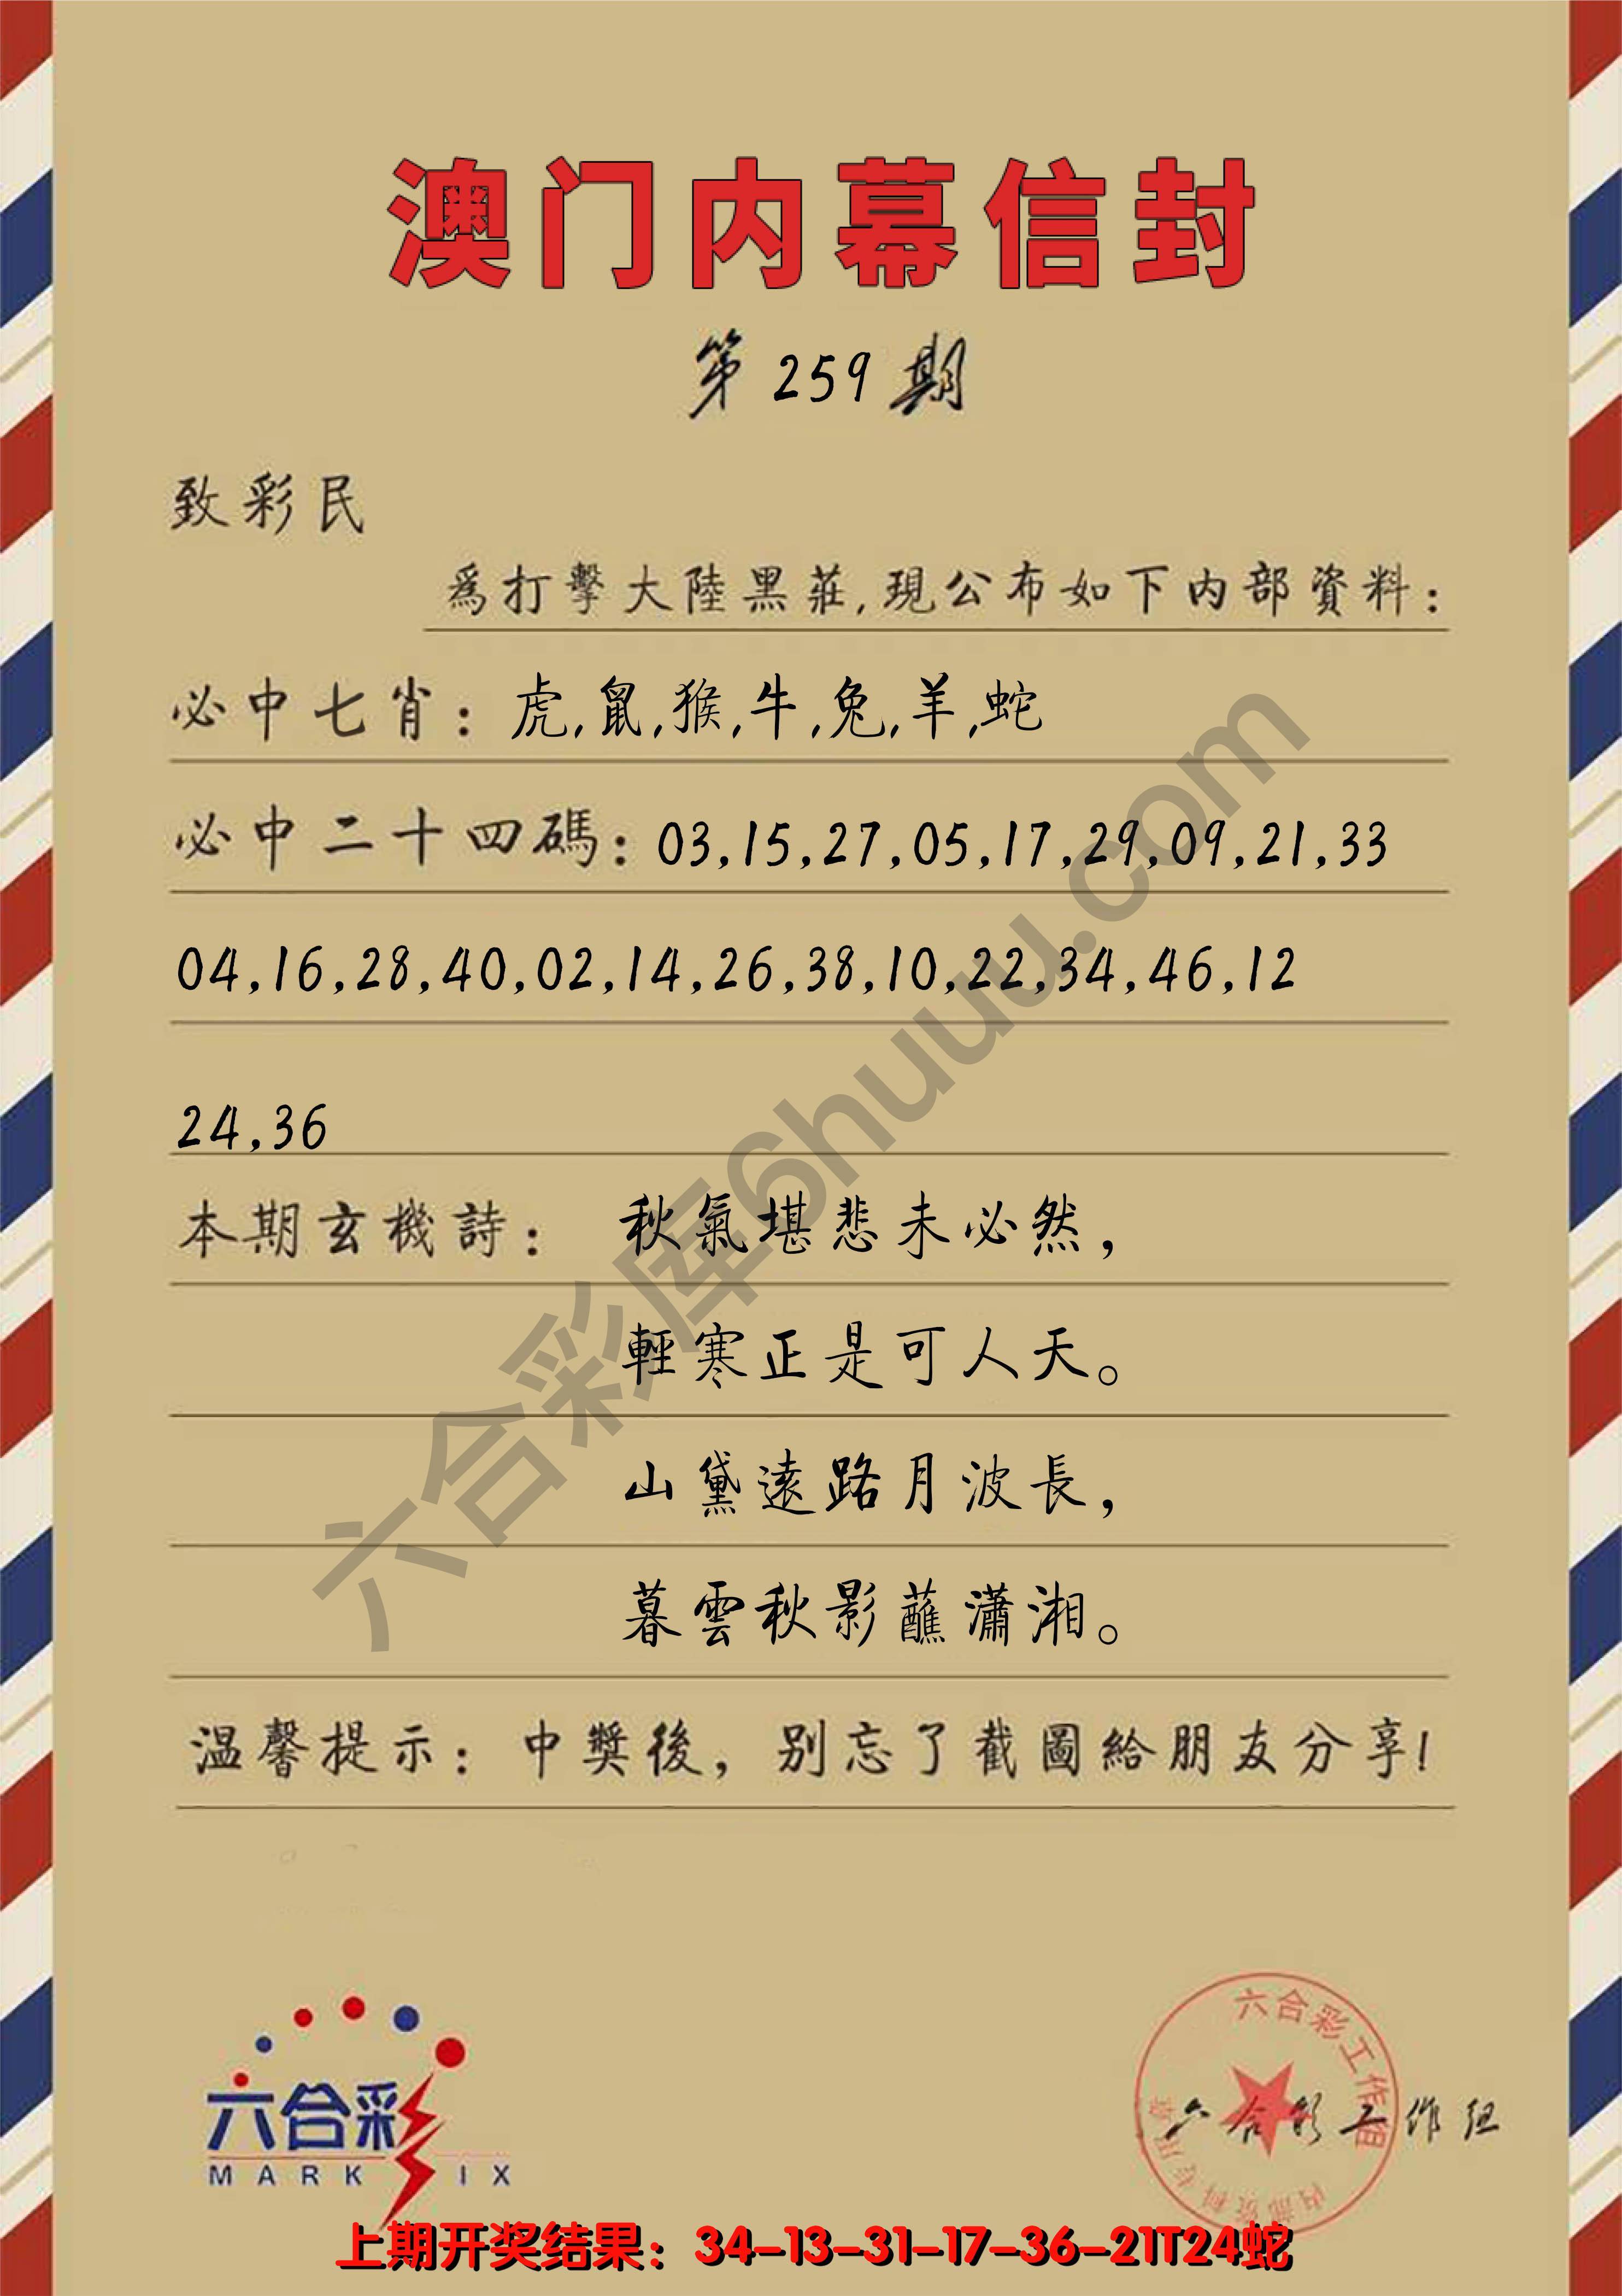 澳门内幕信封
第259期
致彩民
爲打擊大陸黑莊,現公布如下内部資料:
必中七肖: 虎,鼠,猴,牛,兔,羊,蛇
必中二十四碼: 03,15,27,05,17,29,09,21,33
04,16,28,40,02,14,26,38,10,22,34,46,12
24,36
本期玄機詩: 秋氣堪悲未必然,
輕寒正是可人天。
山黛遠路月波長,
暮雲秋影蘸瀟湘。
温馨提示: 中獎後, 別忘了截圖給朋友分享!
六合彩库6huuu.com
六合彩
MARK IX
六合彩工作组
六合彩工作组
上期开奖结果: 34-13-31-17-36-21T24蛇